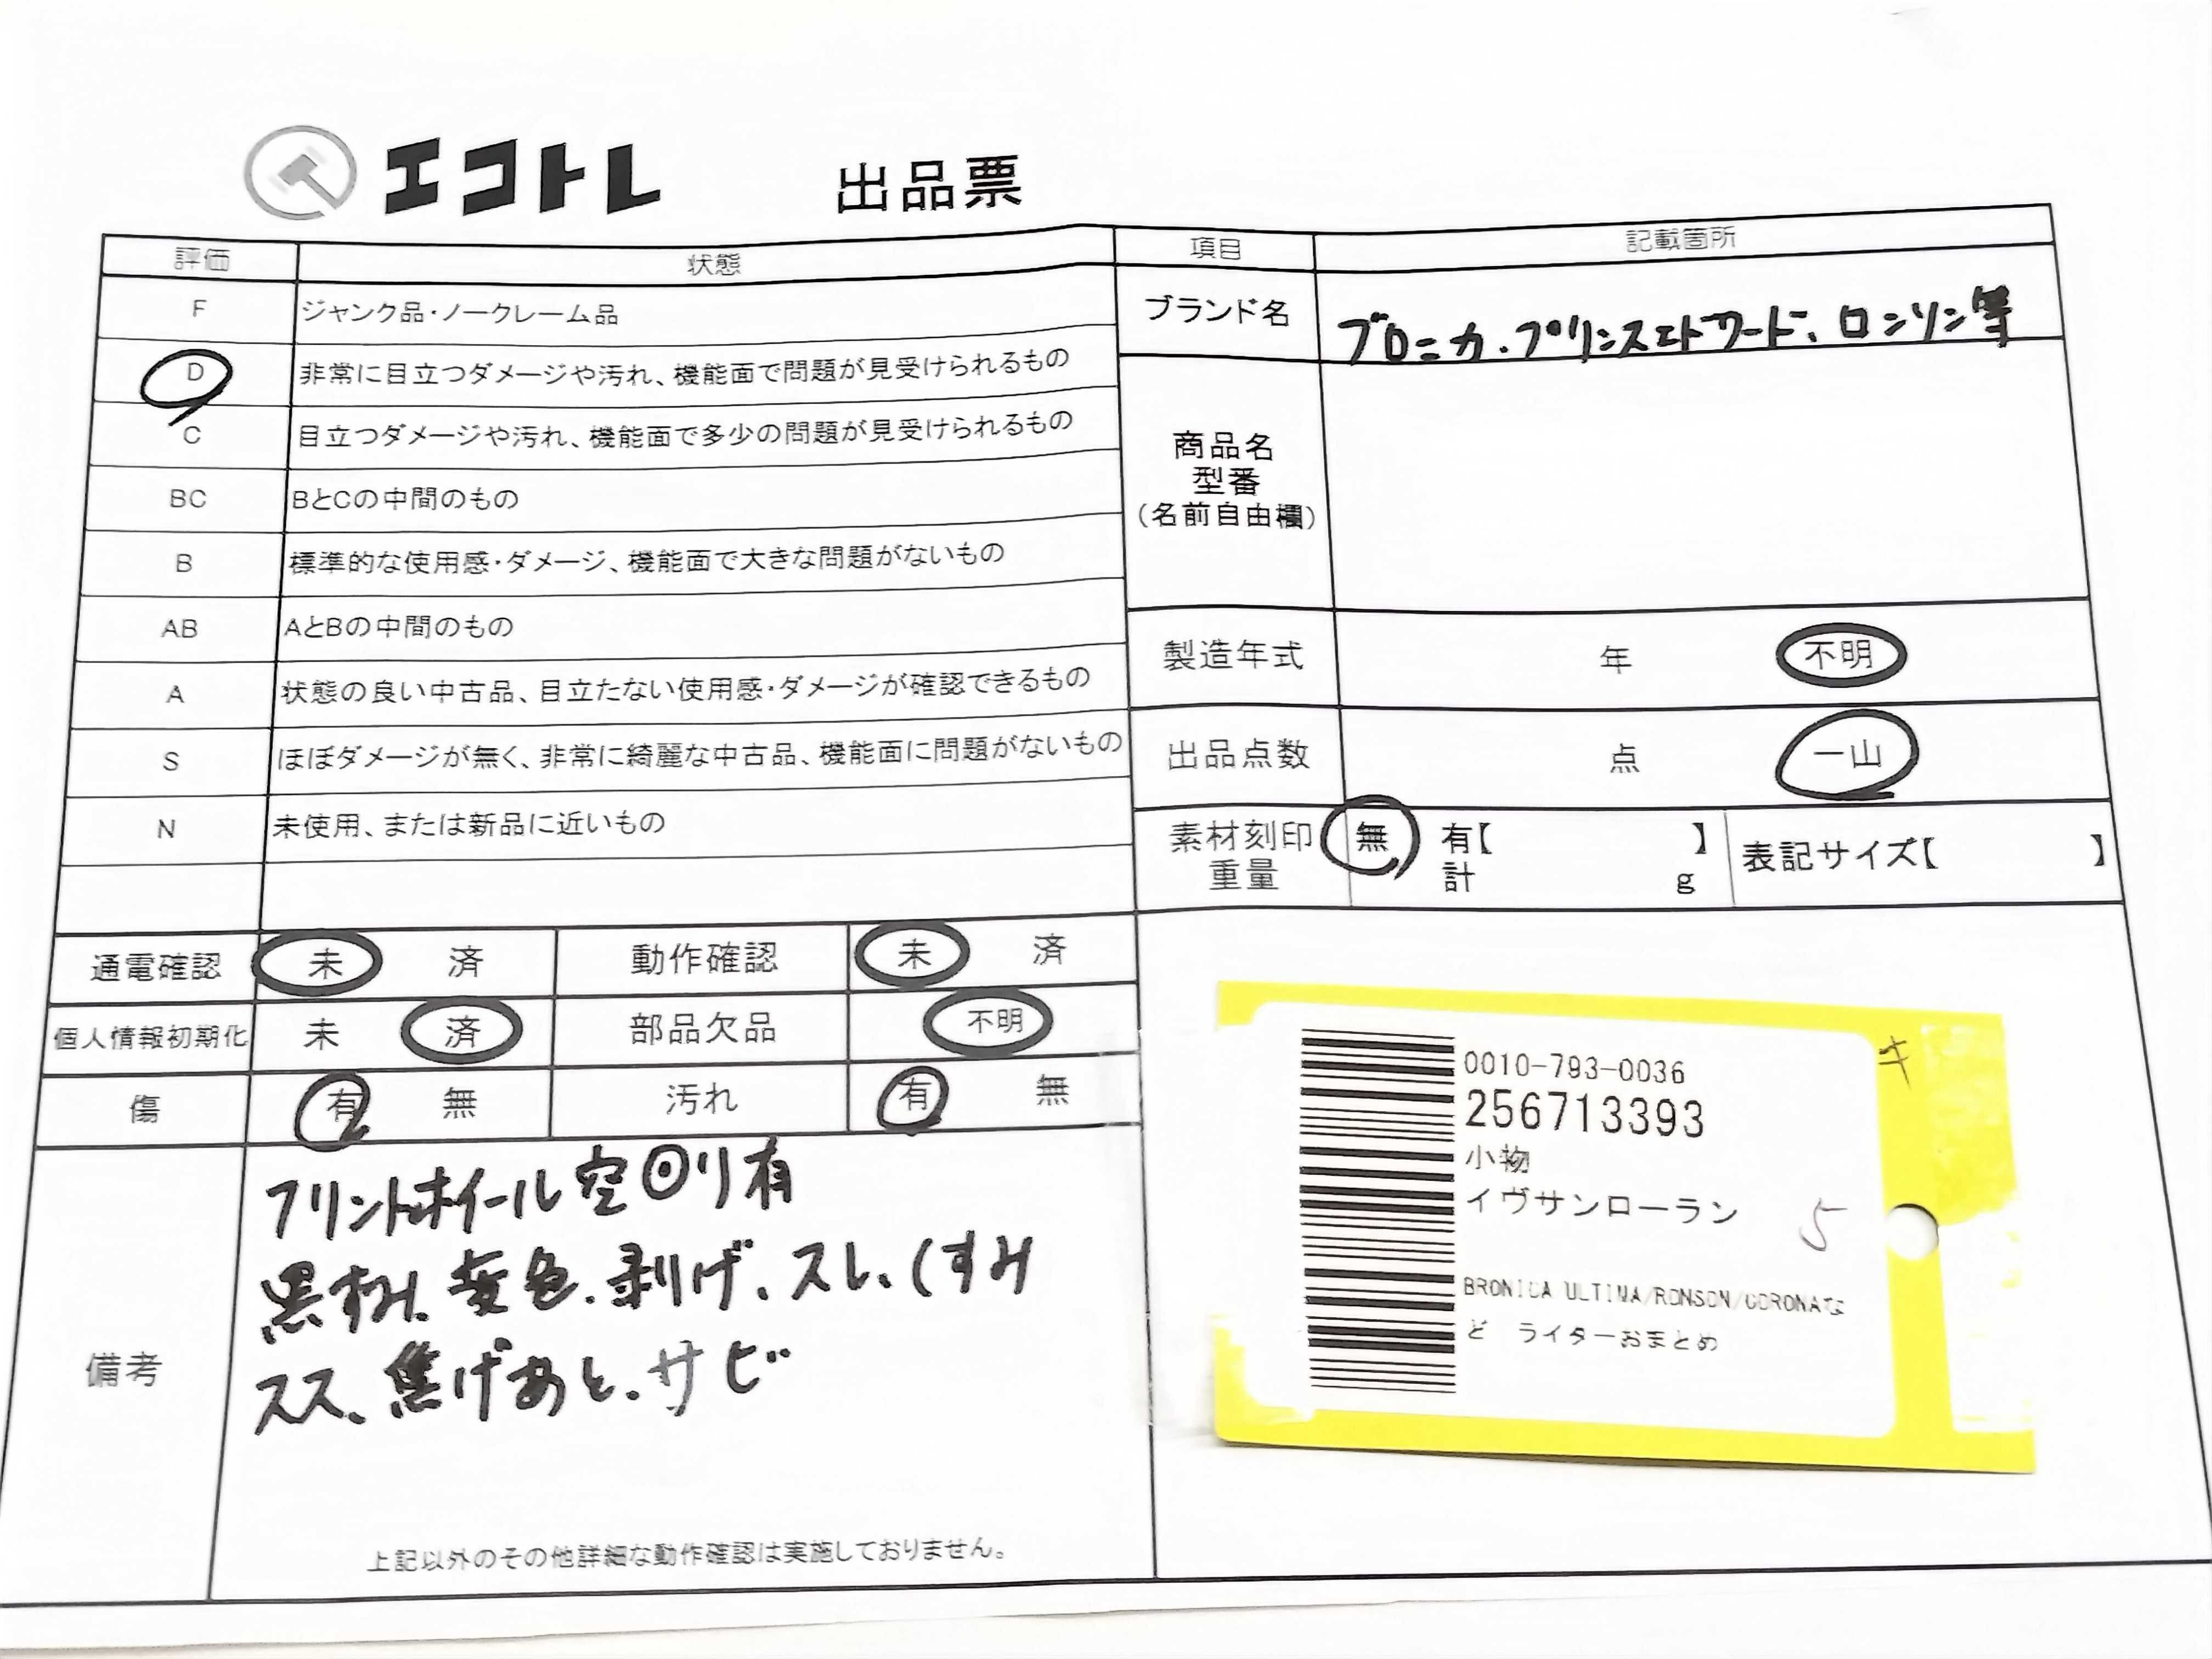 エコトレ 出品票
評価 状態
F ジャンク品・ノークレーム品
D 非常に目立つダメージや汚れ、機能面で問題が見受けられるもの
C 目立つダメージや汚れ、機能面で多少の問題が見受けられるもの
BC BとCの中間のもの
B 標準的な使用感・ダメージ、機能面で大きな問題がないもの
AB AとBの中間のもの
A 状態の良い中古品、目立たない使用感・ダメージが確認できるもの
S ほぼダメージが無く、非常に綺麗な中古品、機能面に問題がないもの
N 未使用、または新品に近いもの
項目 記載箇所
ブランド名 ブロニカ.プリンスエドワード、ロンソン等
商品名
型番
(名前自由欄)
製造年式 年 不明
出品点数 点 一山
素材刻印 無 有【 】 表記サイズ【 】
重量 計 g
通電確認 未 済 動作確認 未 済
個人情報初期化 未 済 部品欠品 不明
傷 有 無 汚れ 有 無
備考
フリントホイール空回り有
黒ずみ、変色.剥げ、スレ、くすみ
スス、焦げあと.サビ
上記以外のその他詳細な動作確認は実施しておりません。
0010-793-0036
256713393
小物
イヴサンローラン
5
BRONICA ULTIMA/RONSON/CORONAな
ど ライターおまとめ